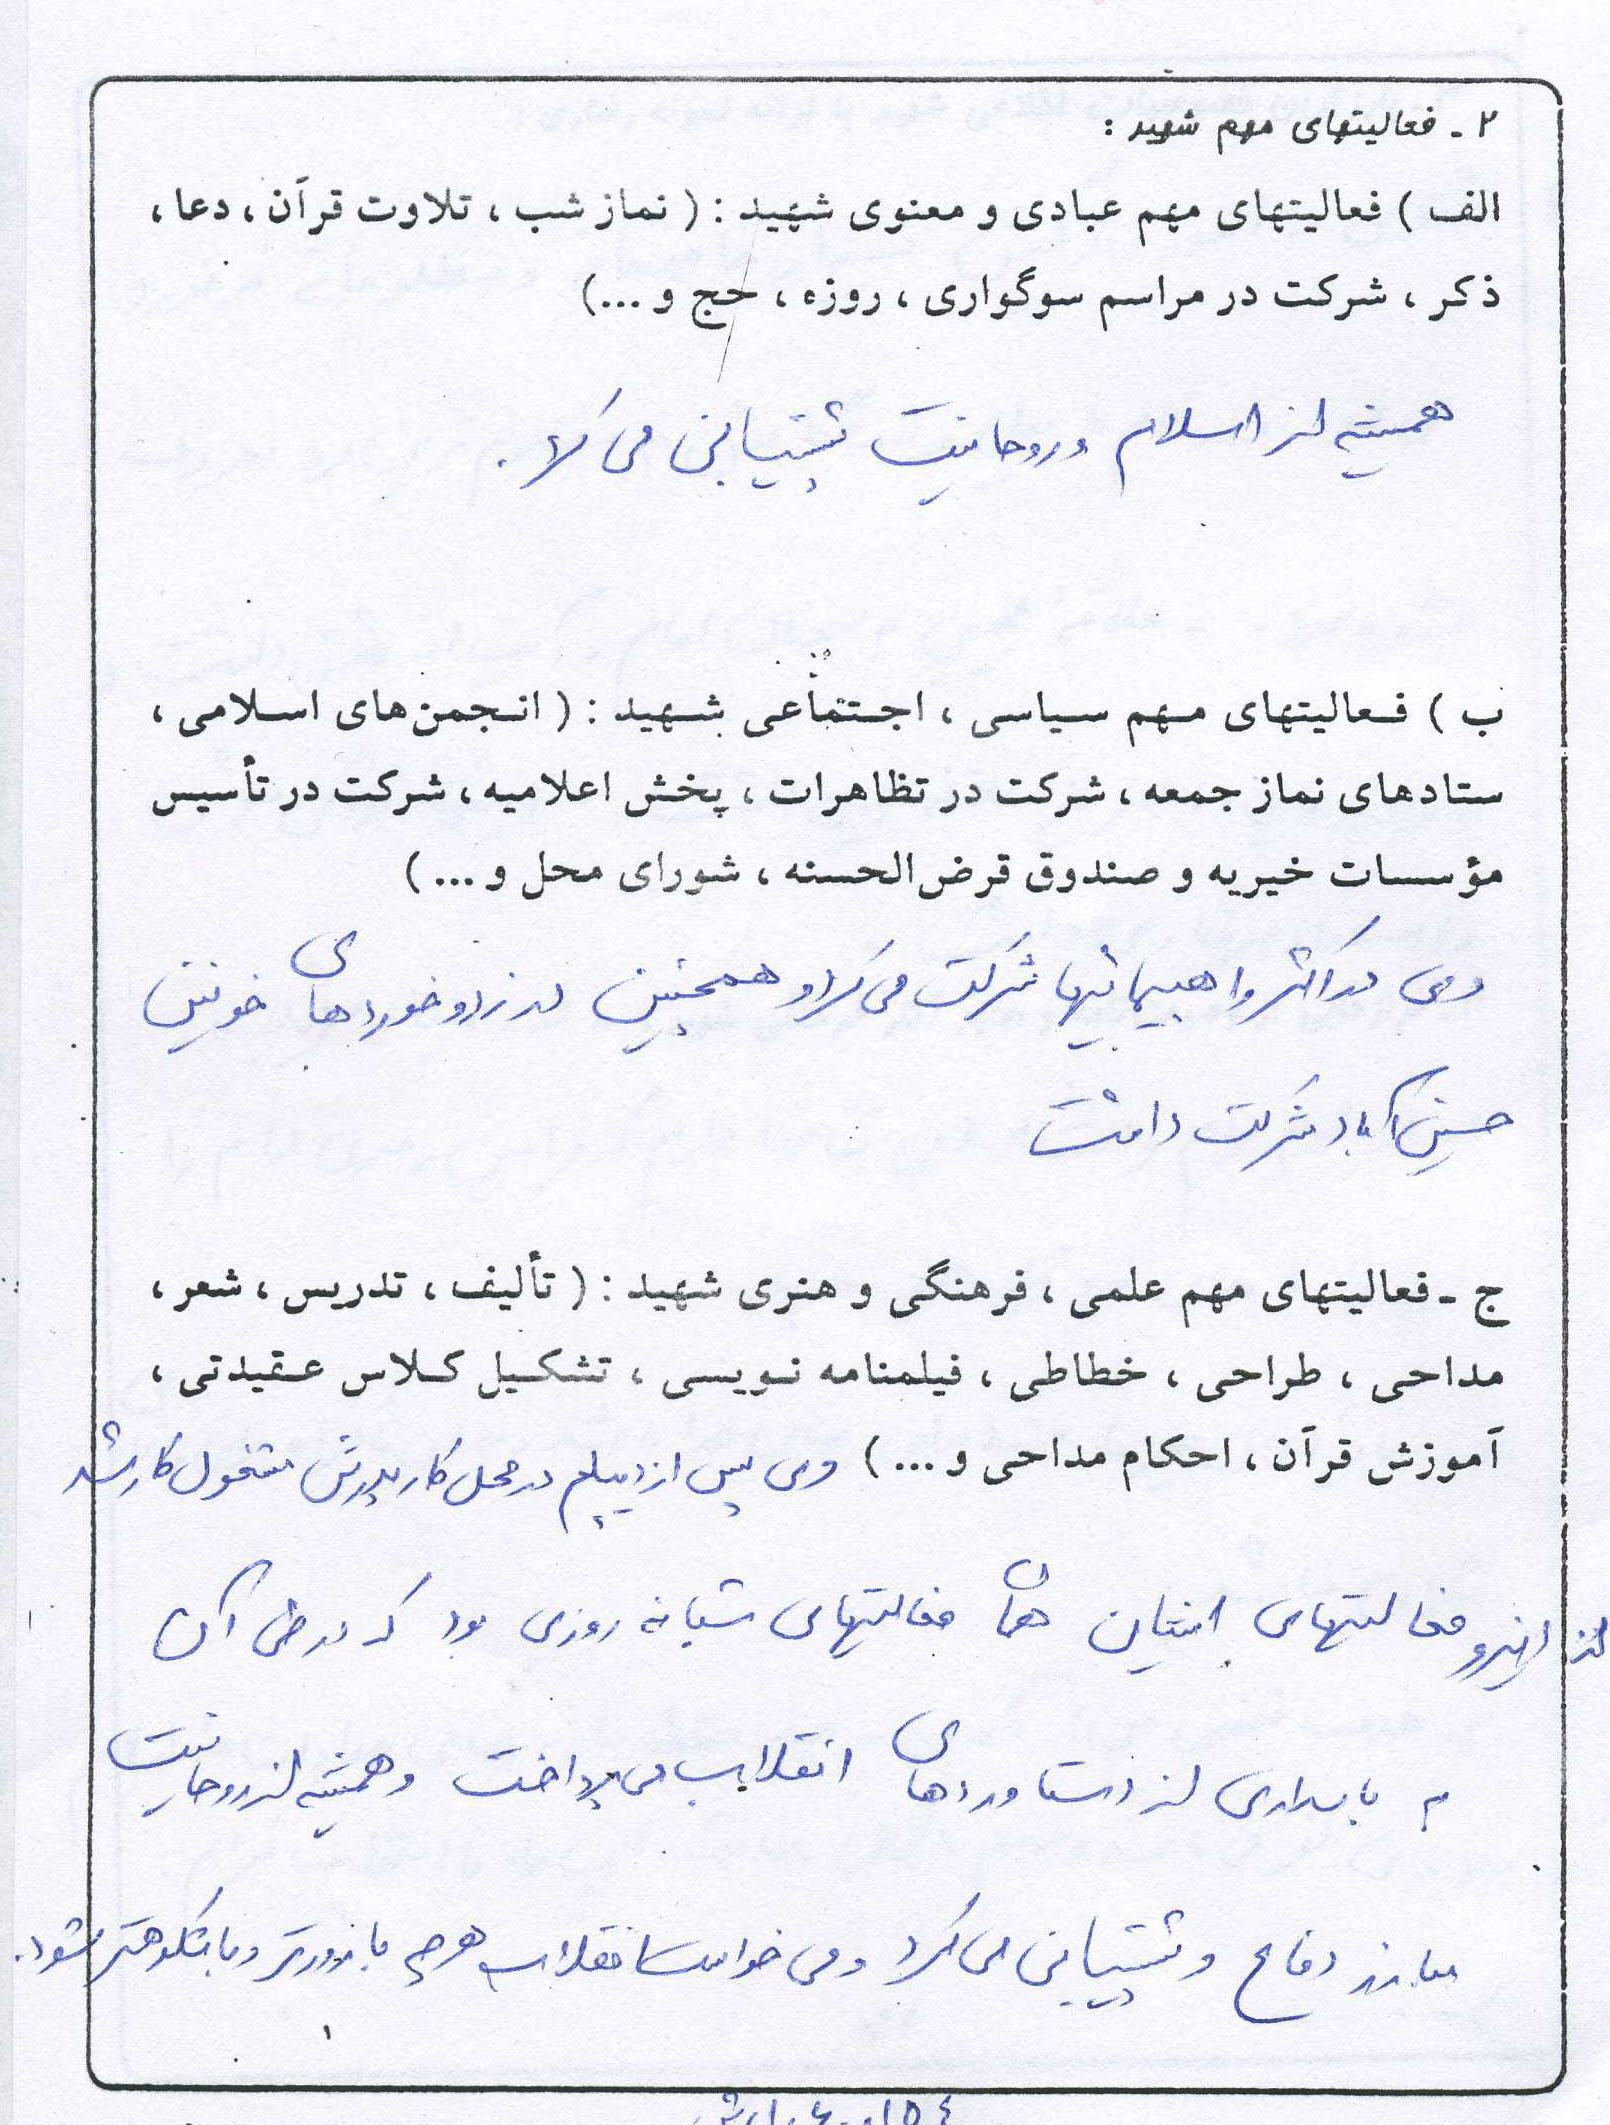 ۲ - فعالیتهای مهم شهید :
الف ) فعالیتهای مهم عبادی و معنوی شهید : ( نماز شب ، تلاوت قرآن ، دعا ،
ذکر ، شرکت در مراسم سوگواری ، روزه ، حج و ...)
همیشه از اسلام و روحانیت پشتیبانی می کرد .
ب ) فعالیتهای مهم سیاسی ، اجتماعی شهید : ( انجمن‌های اسلامی ،
ستادهای نماز جمعه ، شرکت در تظاهرات ، پخش اعلامیه ، شرکت در تأسیس
مؤسسات خیریه و صندوق قرض‌الحسنه ، شورای محل و ... )
وی در اکثر راهپیمائیها شرکت می کرد و همچنین در زد و خوردهای خونین
حسین آباد شرکت داشت
ج - فعالیتهای مهم علمی ، فرهنگی و هنری شهید : ( تألیف ، تدریس ، شعر ،
مداحی ، طراحی ، خطاطی ، فیلمنامه نویسی ، تشکیل کلاس عقیدتی ،
آموزش قرآن ، احکام مداحی و ... ) وی پس از دیپلم در محل کار پدرش مشغول کار شد
از اینرو فعالیتهای ایشان همان فعالیتهای شبانه روزی بود که در طی آن
به پاسداری از دستاوردهای انقلاب می پرداخت و همیشه از روحانیت
مبارز دفاع و پشتیبانی می کرد و می خواست انقلاب هر چه بارورتر و باشکوهتر شود .